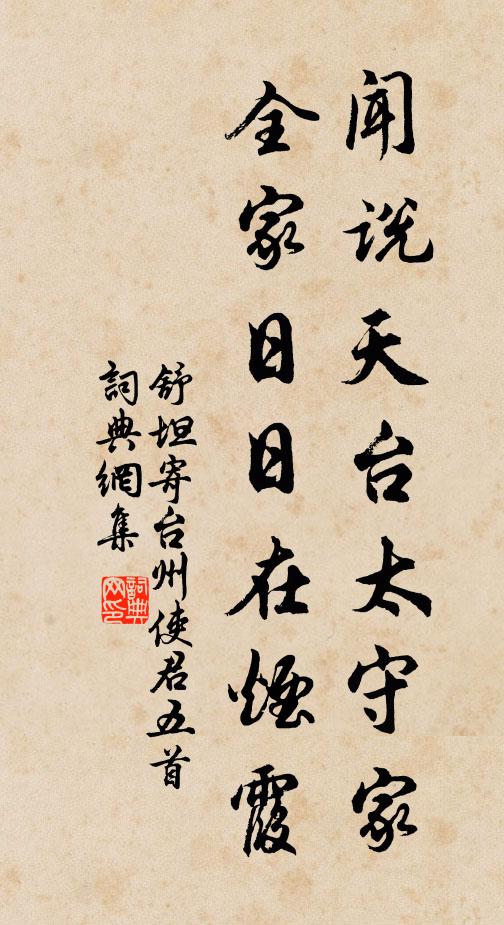 闻说天台太守家
全家日日在烟霞
舒坦寄台州使君五首
詞典網集
詞典网印